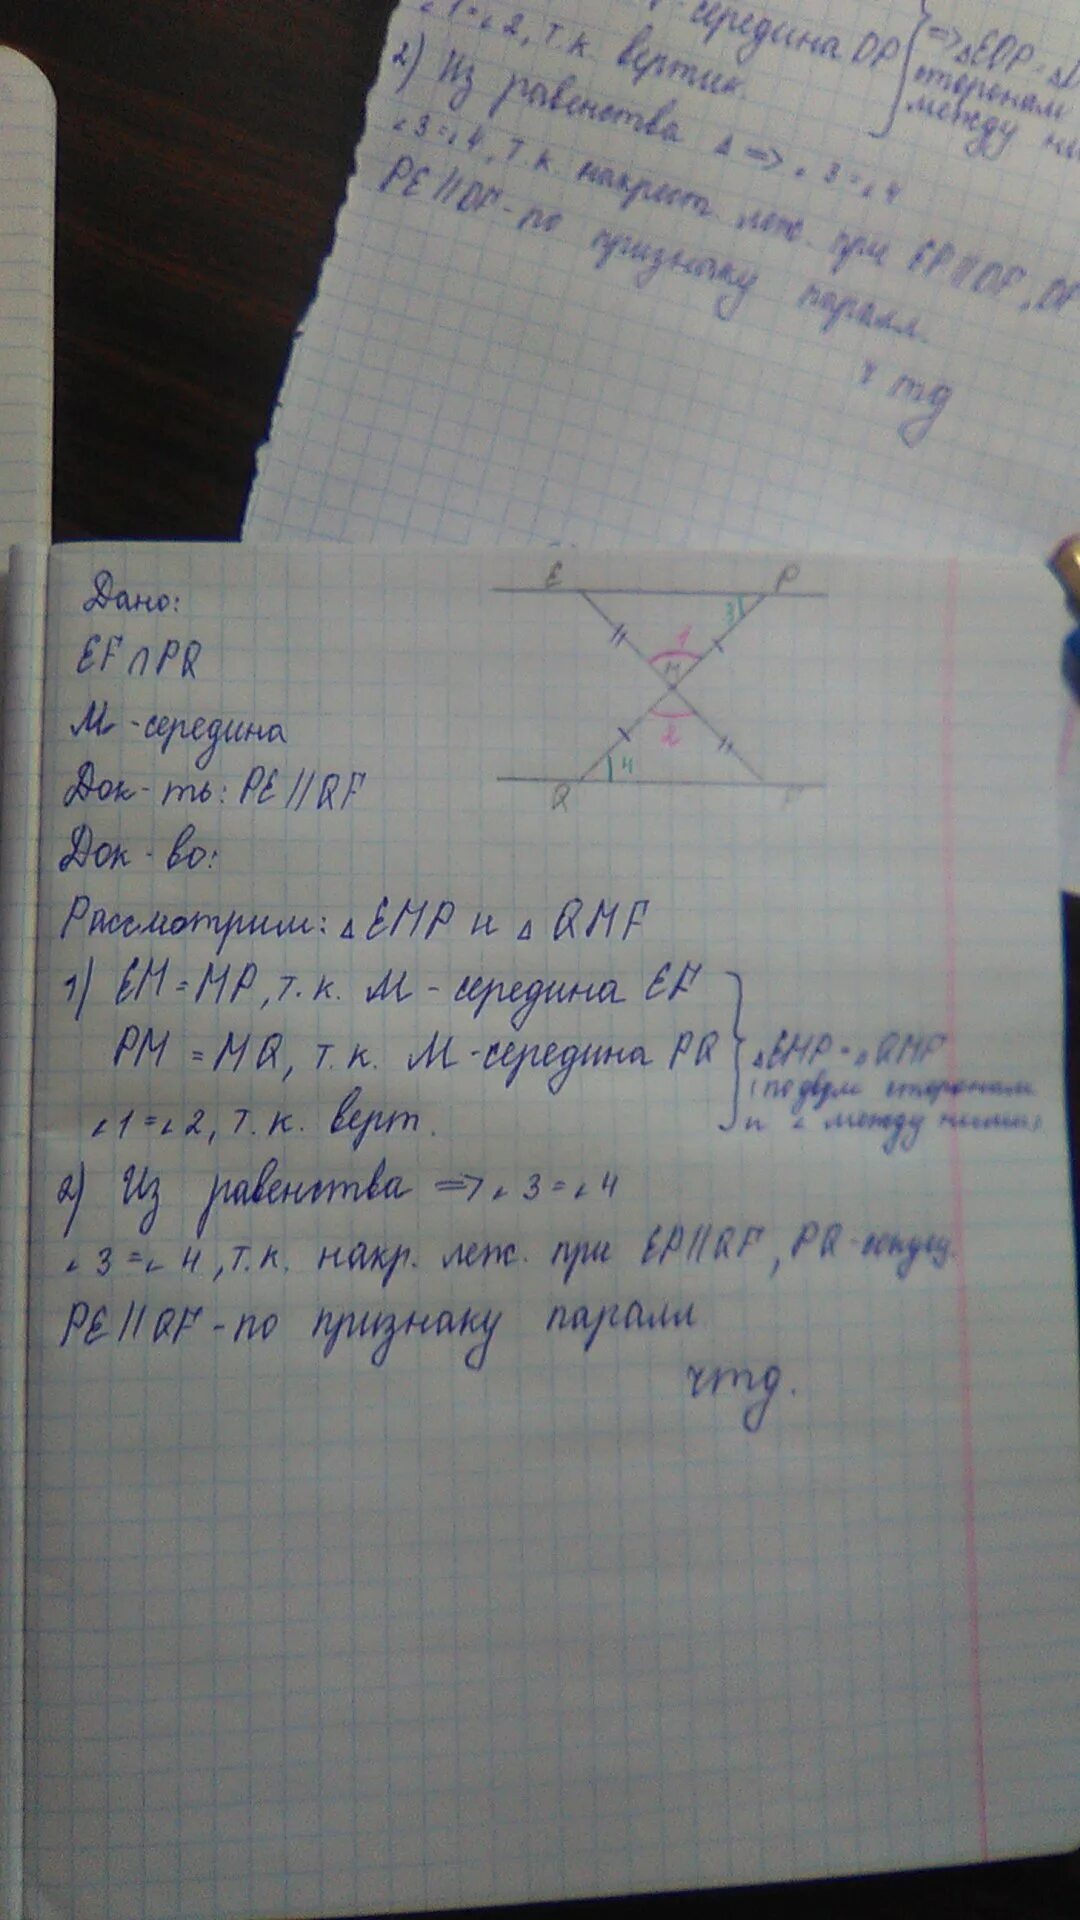 ∠1=∠2, т.к. вертик.
середина DP
=> △EDP = △
сторонам
между
2) Из равенства △ => ∠3=∠4
∠3=∠4, т.к. накрест. леж. при EP||DF, DP
PE||DF - по признаку паралл.
чтд
Дано:
EF∩PQ
M - середина
Док-ть: PE||QF
Док-во:
E P
3
1
M
2
4
Q F
Рассмотрим: △EMP и △QMF
1) EM=MP, т.к. M - середина EF
PM = MQ, т.к. M - середина PQ
∠1=∠2, т.к. верт.
△EMP = △QMF
(по двум сторонам
и ∠ между ними)
2) Из равенства => ∠3=∠4
∠3=∠4, т.к. накр. леж. при EP||QF, PQ - секущ.
PE||QF - по признаку паралл
чтд.